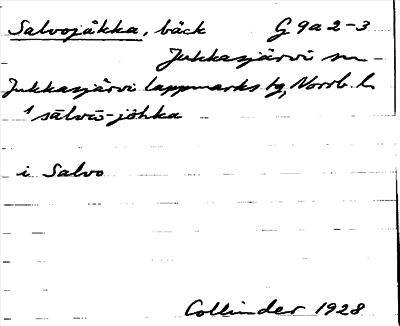 Salvojåkka, bäck G 9a2-3
Jukkasjärvi sn
Jukkasjärvi lappmarks tg, Norrb. l.
¹ sālvō-jǒhka
i Salvo
Collinder 1928